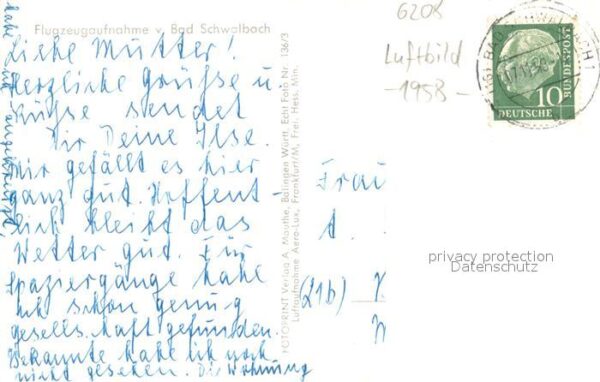 Flugzeugaufnahme v. Bad Schwalbach
Liebe Mutter!
Herzliche Grüsse u.
Küsse sendet
Dir Deine Ilse.
Mir gefällt es hier
ganz gut. Hoffent-
lich bleibt das
Wetter gut. Für
Spaziergänge habe
ich schon genug
gesellschaft gefunden.
Bekannte habe ich noch
nicht gesehen. Die Wohnung
habe ich angekreuzt.
FOTOPRINT Verlag A. Mauthe, Balingen Württ. Echt Foto Nr. 136/3
Luftaufnahme Aero-Lux, Frankfurt/M, Frei. Hess. Min.
6208
Luftbild
-1958-
BAD SCHWALBACH 1
DEUTSCHE BUNDESPOST
10
Frau
(21b)
privacy protection
Datenschutz